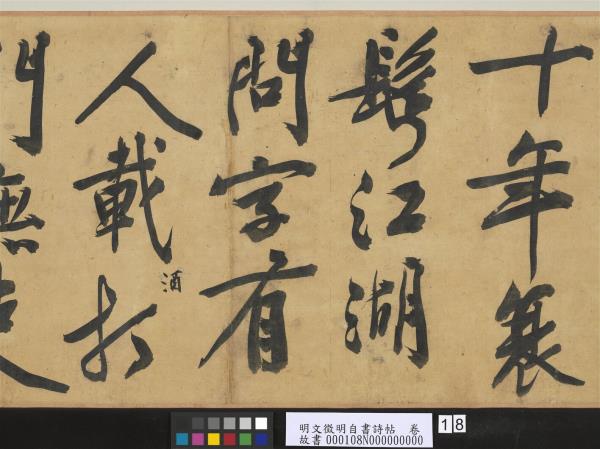 十年衰
鬢江湖
問字有
人載酒打
門無吏
明文徵明自書詩帖 卷
故書000108N000000000
18